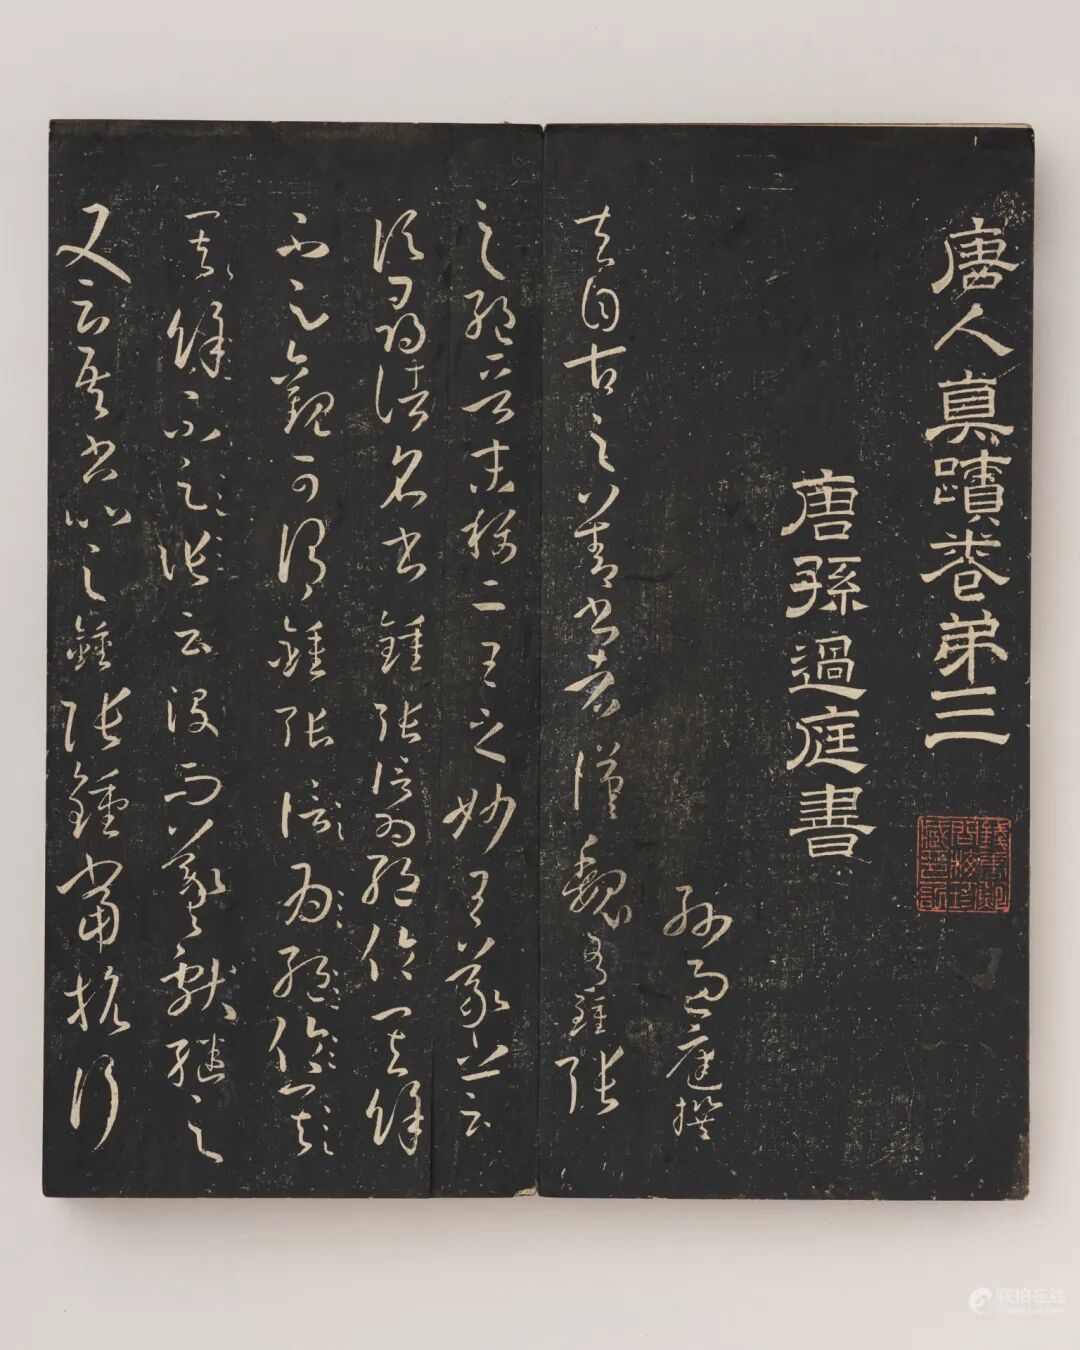 唐人真蹟卷弟三
唐孫過庭書
孫過庭撰
夫自古之善書者漢魏有鍾張
之絕晉末稱二王之妙王羲之云
頃尋諸名書鍾張信為絕倫其餘
不足觀可謂鍾張信為絕倫其
餘不足云沒而羲獻繼之
又云吾書比之鍾張鍾當抗行
联拍在线